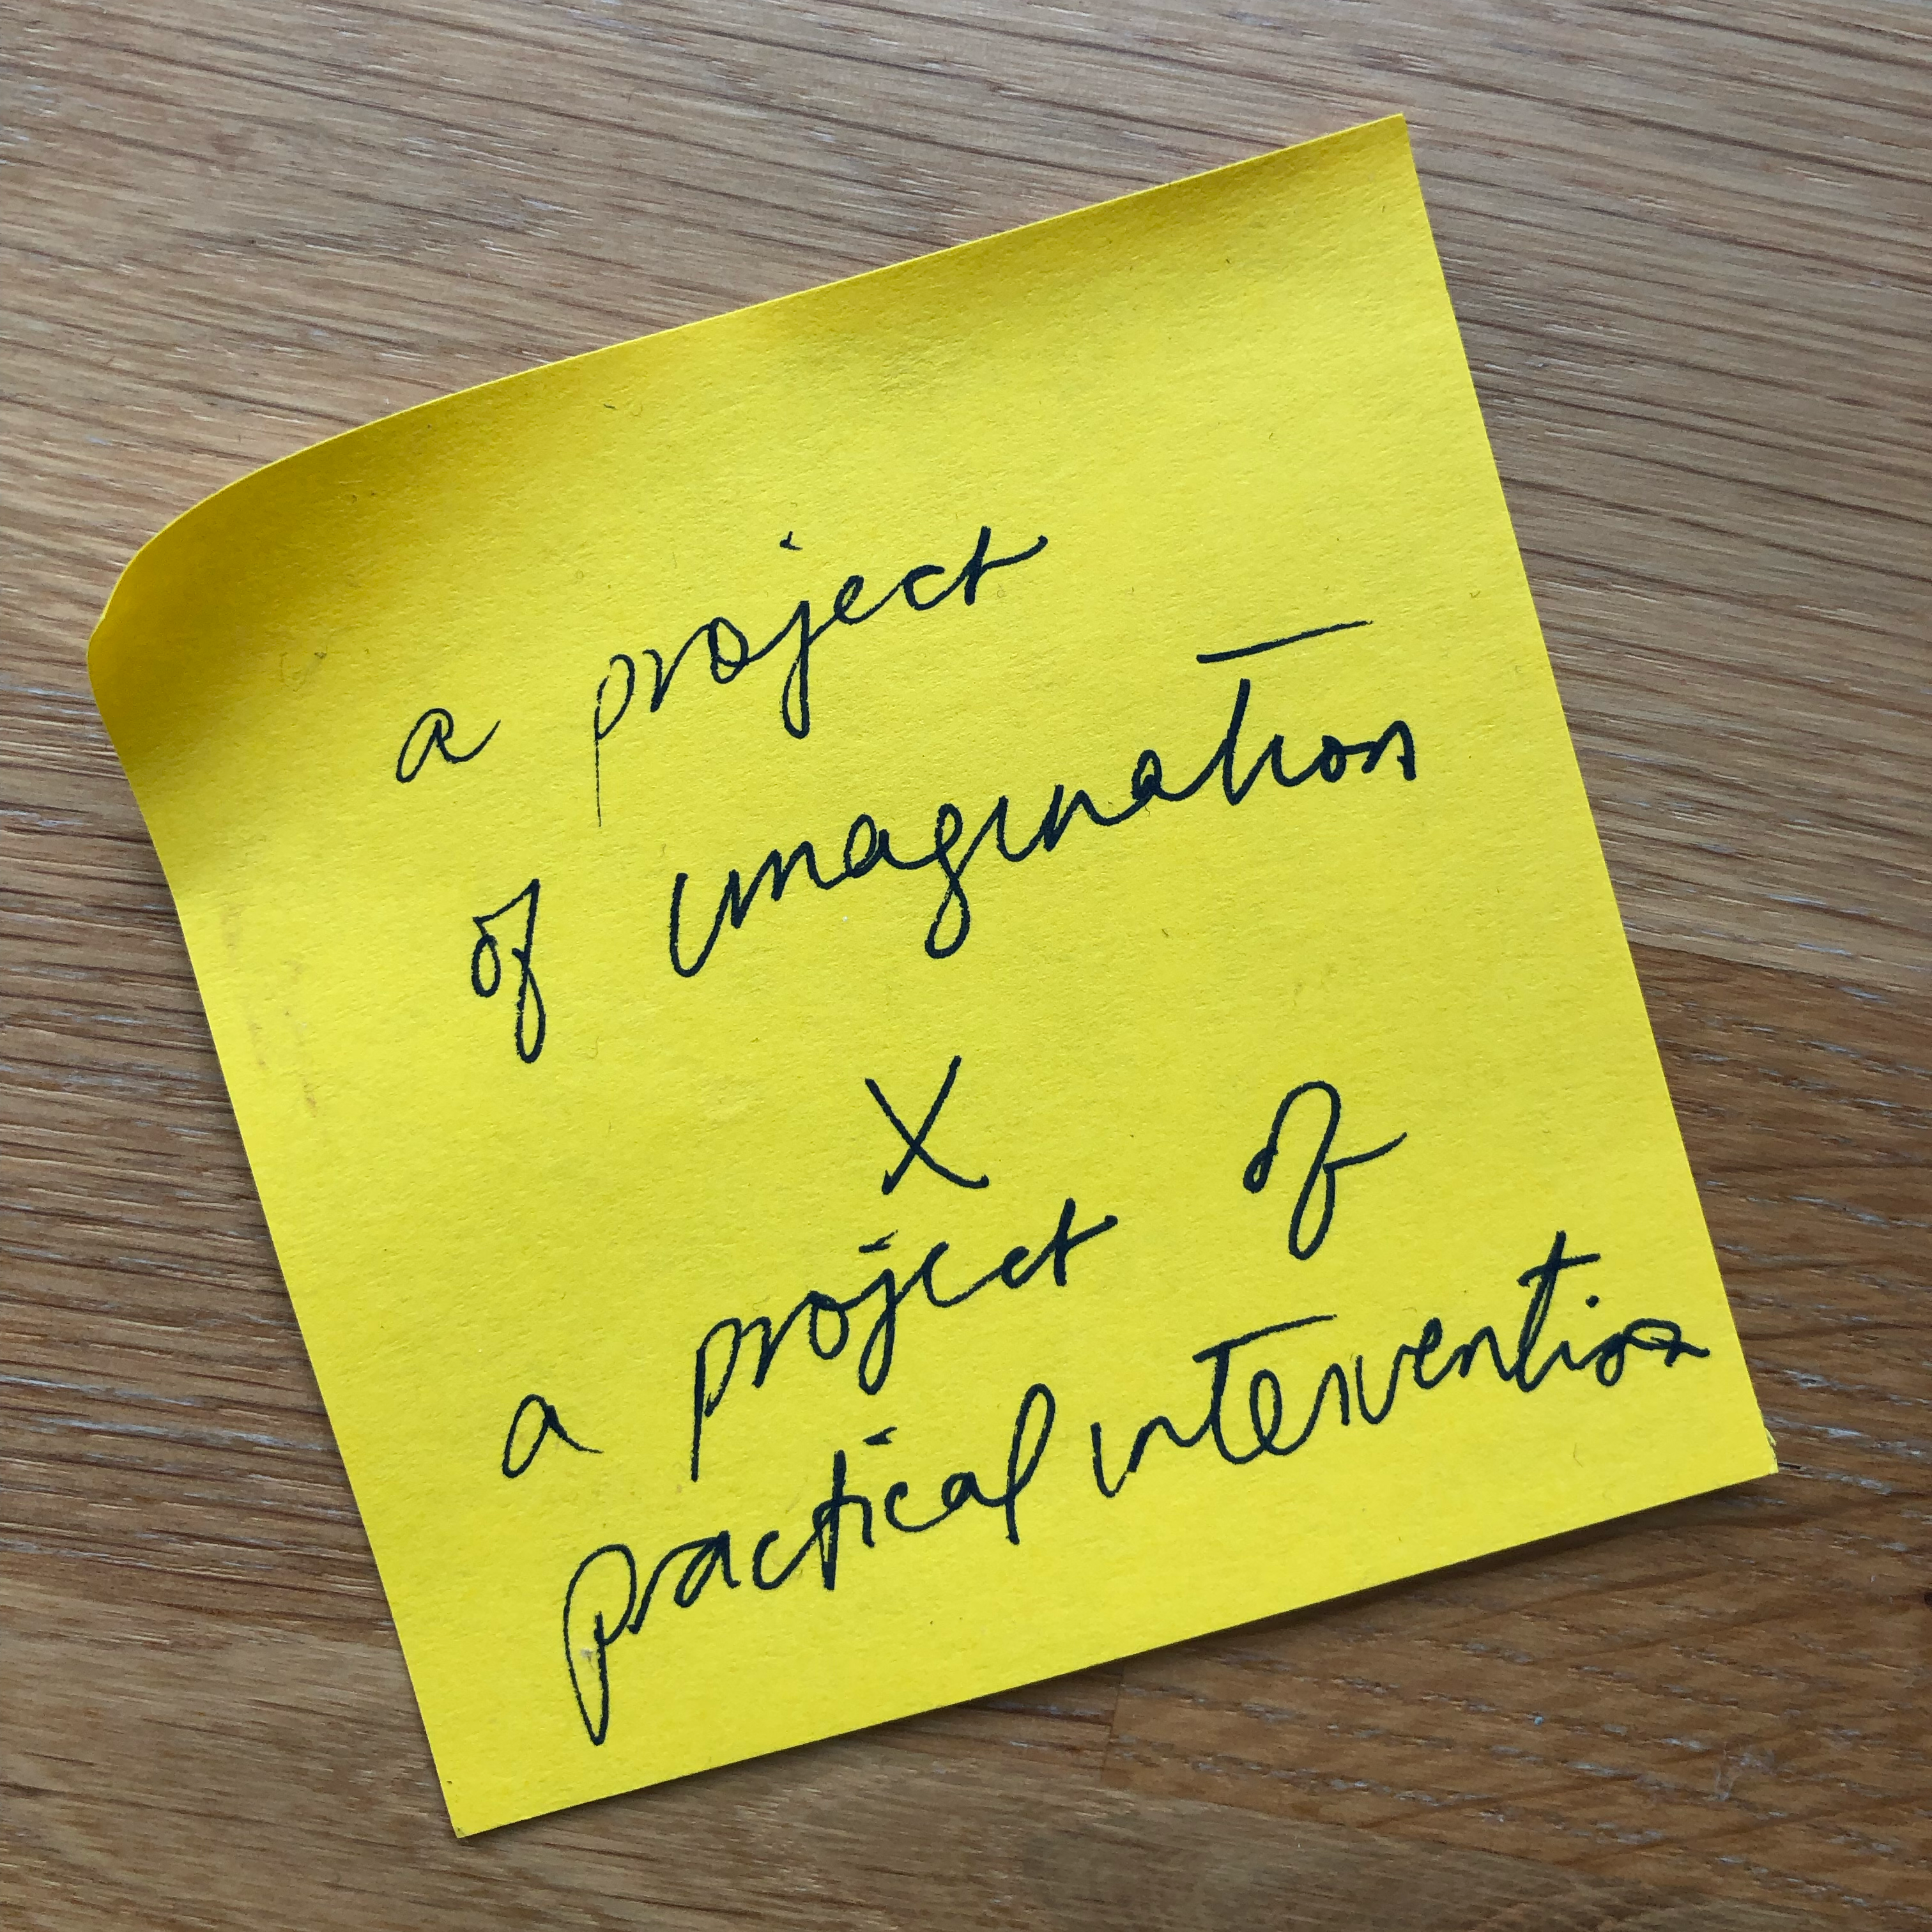 a project
of imagination
X
a project of
practical intervention